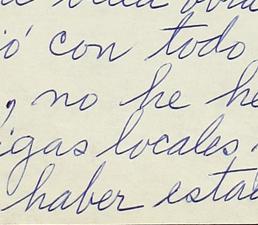 ó con todo
, no he he
igas locales
haber estad